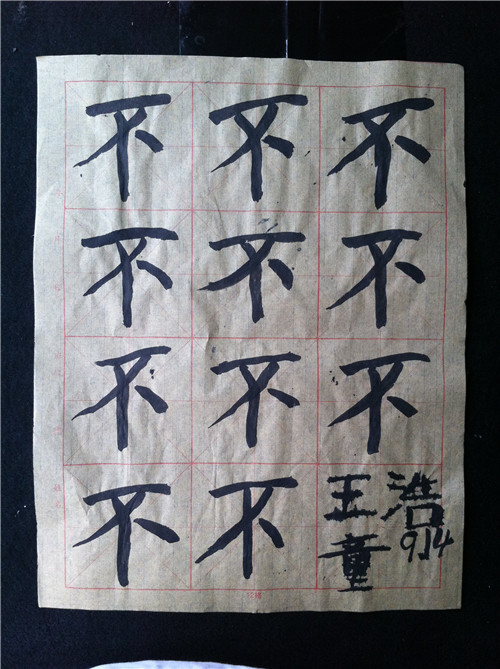 不不不
不不不
不不不
不不王浩
童914